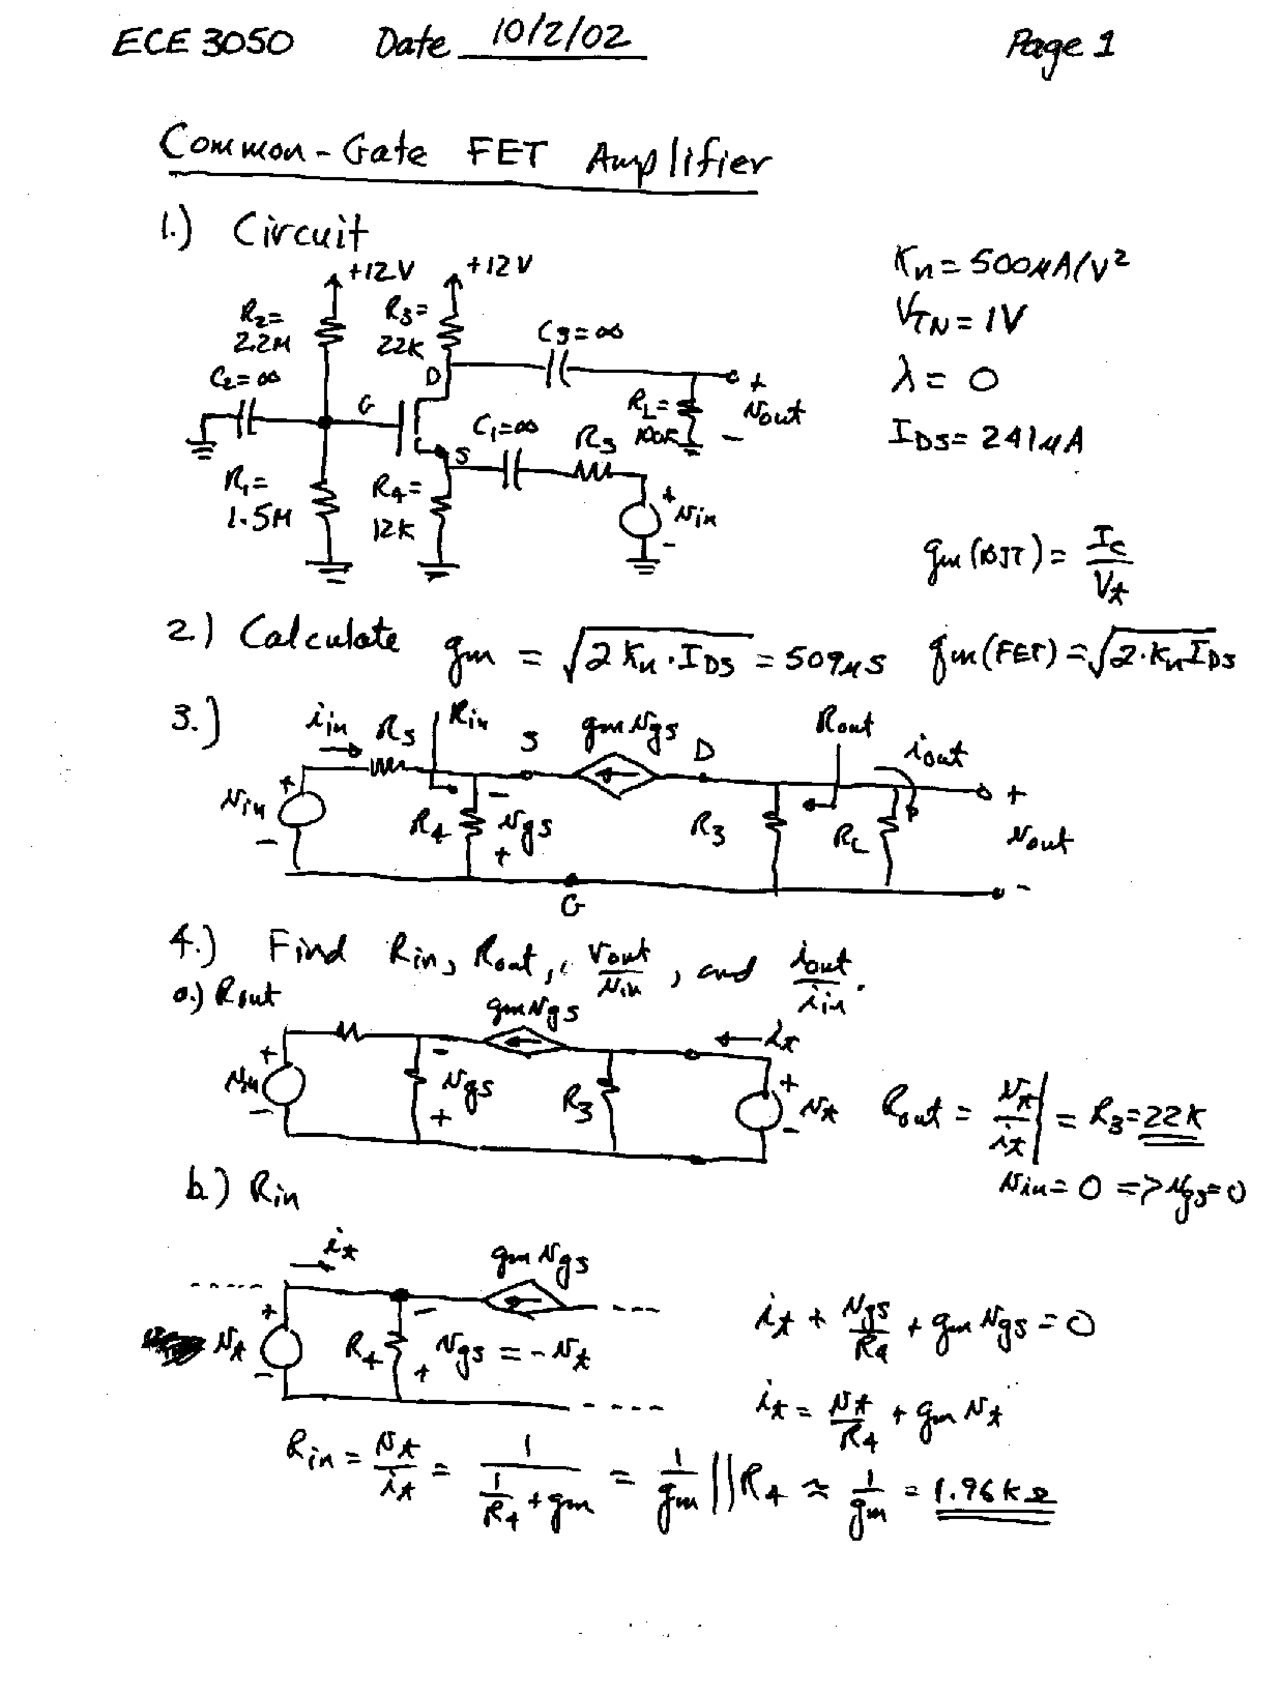 ECE 3050 Date 10/2/02 Page 1
Common-Gate FET Amplifier
1.) Circuit
+12V +12V
R2= 2.2M
R3= 22K
C3=∞
C2=∞
G D S
C1=∞
RS
RL= 100K
+ vout -
R1= 1.5M
R4= 12K
+ vin -
Kn = 500µA/V²
VTN = 1V
λ = 0
IDS = 241µA
gm (BJT) = Ic/Vt
2.) Calculate gm = √(2 Kn · IDS) = 509µS gm (FET) = √(2·Kn IDS)
3.) iin RS Rin S gm vgs D Rout iout
+ vin - R4 - vgs + R3 RL + vout -
G
4.) Find Rin, Rout, vout/vin, and iout/iin.
a.) Rout
gm vgs it
+ vin - - vgs + R3 + vt - Rout = vt/it | = R3 = 22K
vin = 0 => vgs = 0
b.) Rin
it gm vgs
+ vt - R4 - + vgs = -vt
it + vgs/R4 + gm vgs = 0
it = vt/R4 + gm vt
Rin = vt/it = 1/(1/R4 + gm) = 1/gm || R4 ≈ 1/gm = 1.96KΩ